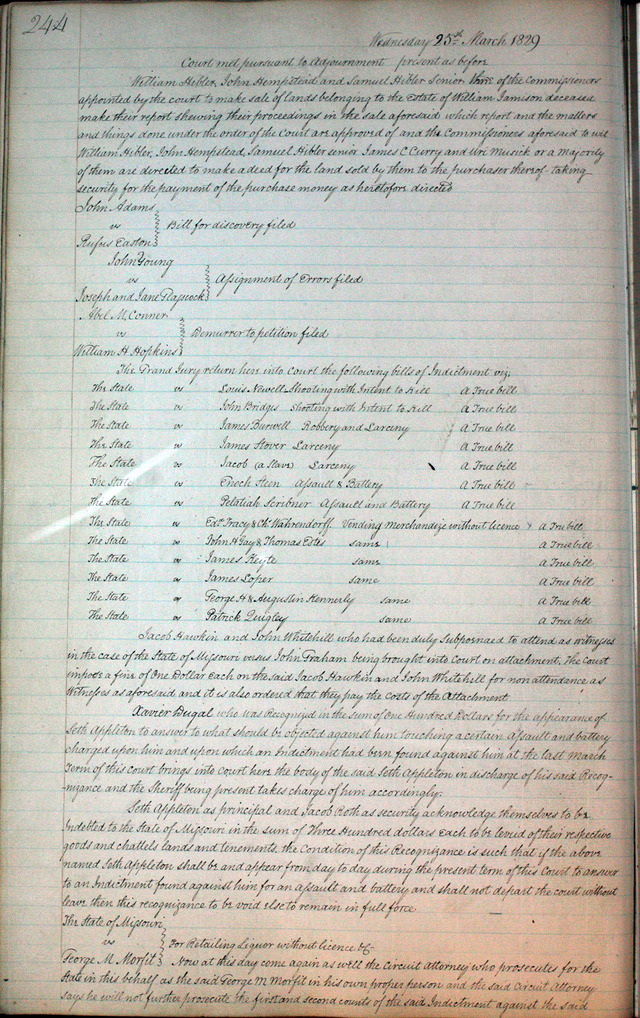 244
Wednesday 25th March 1829
Court met pursuant to adjournment present as before
William Hibler, John Hempstead and Samuel Hibler Senior three of the Commissioners
appointed by the court to make sale of lands belonging to the Estate of William Jamison deceased
make their report shewing their proceedings in the sale aforesaid which report and the matters
and things done under the order of the Court are approved of and the Commissioners aforesaid to wit
William Hibler, John Hempstead, Samuel Hibler senior James C Curry and Uri Musick or a majority
of them are directed to make a deed for the land sold by them to the purchaser thereof taking
security for the payment of the purchase money as heretofore directed
John Adams
vs Bill for discovery filed
Rufus Easton
John Young
vs Assignment of Errors filed
Joseph and Jane Plasscock
Abel McConner
vs Demurrer to petition filed
William H. Hopkins
The Grand Jury return here into Court the following bills of Indictment viz
The State vs Louis Newell Shooting with Intent to Kill A True bill
The State vs John Bridges Shooting with Intent to Kill A True bill
The State vs James Burwell Robbery and Larceny A True bill
The State vs James Stover Larceny A True bill
The State vs Jacob (a Slave) Larceny A True bill
The State vs Enoch Steen Assault & Battery A True bill
The State vs Pelatiah Scribner Assault and Battery A True bill
The State vs Edwd Tracy & Chs Wahrendorff Vending Merchandize without licence A True bill
The State vs John H Gay & Thomas Estes same A True bill
The State vs James Keyte same A True bill
The State vs James Loper same A True bill
The State vs George H & Augustin Kennerly same A True bill
The State vs Patrick Quigley same A True bill
Jacob Hawkin and John Whitehill who had been duly Subpoenaed to attend as witnesses
in the case of the State of Missouri versus John Graham being brought into Court on attachment, the Court
impose a fine of One Dollar Each on the said Jacob Hawkin and John Whitehill for non attendance as
Witnesses as aforesaid and it is also ordered that they pay the costs of the Attachment
Xavier Dugal who was Recognized in the sum of One Hundred Dollars for the appearance of
Seth Appleton to answer to what should be objected against him touching a certain Assault and battery
charged upon him and upon which an Indictment had been found against him at the last March
Term of this court brings into court here the body of the said Seth Appleton in discharge of his said Recog-
nizance and the Sheriff being present takes charge of him accordingly.
Seth Appleton as principal and Jacob Roth as security acknowledge themselves to be
Indebted to the State of Missouri in the sum of Three Hundred dollars Each to be levied of their respective
goods and chattels lands and tenements, the Condition of this Recognizance is such that if the above
named Seth Appleton shall be and appear from day to day during the present term of this Court to answer
to an Indictment found against him for an Assault and battery and shall not depart the court without
leave then this recognizance to be void else to remain in full force
The State of Missouri
vs For Retailing Liquor without licence &c
George M. Morfit Now at this day come again as well the Circuit Attorney who prosecutes for the
State in this behalf as the said George M Morfit in his own proper person and the said Circuit Attorney
says he will not further prosecute the first and second counts of the said Indictment against the said